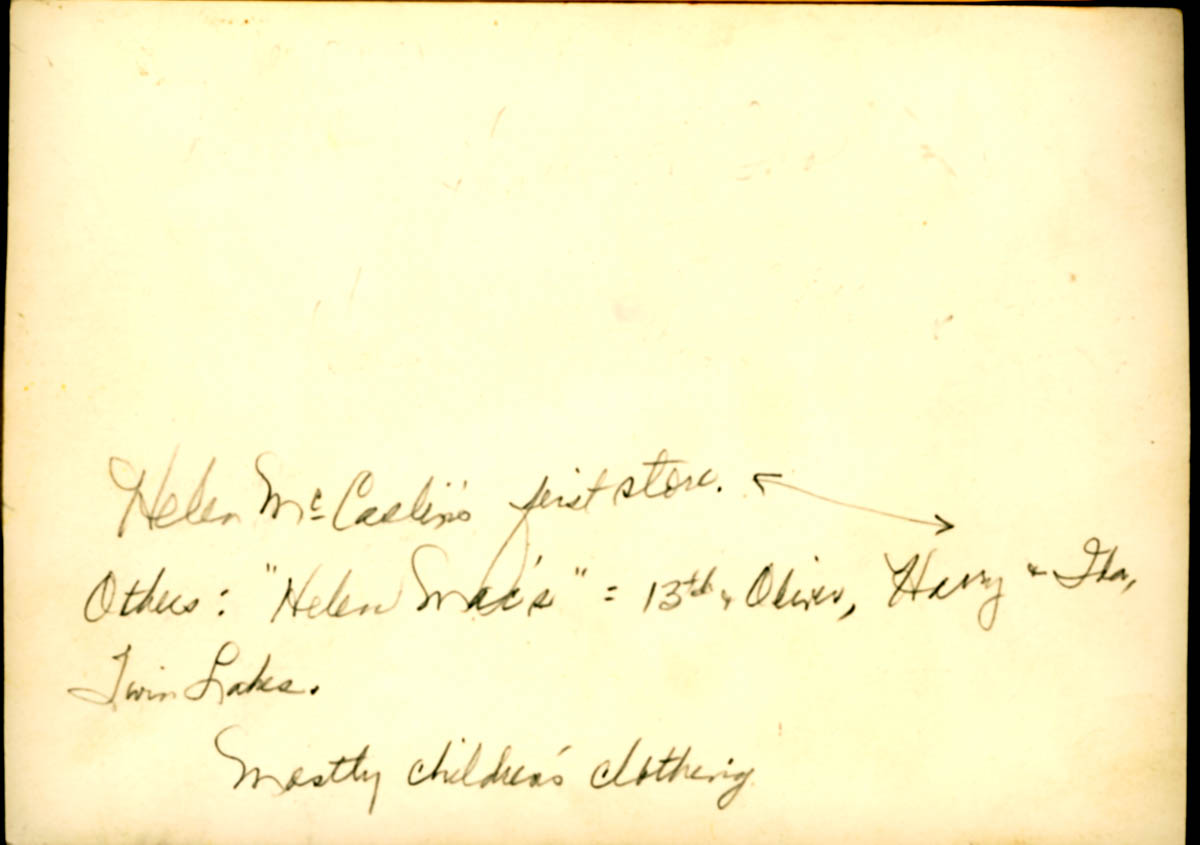 Helen McCaslin's first store.
Others: "Helen Mac's" = 13th & Oliver, Harry & Ida,
Twin Lakes.
Mostly children's clothing